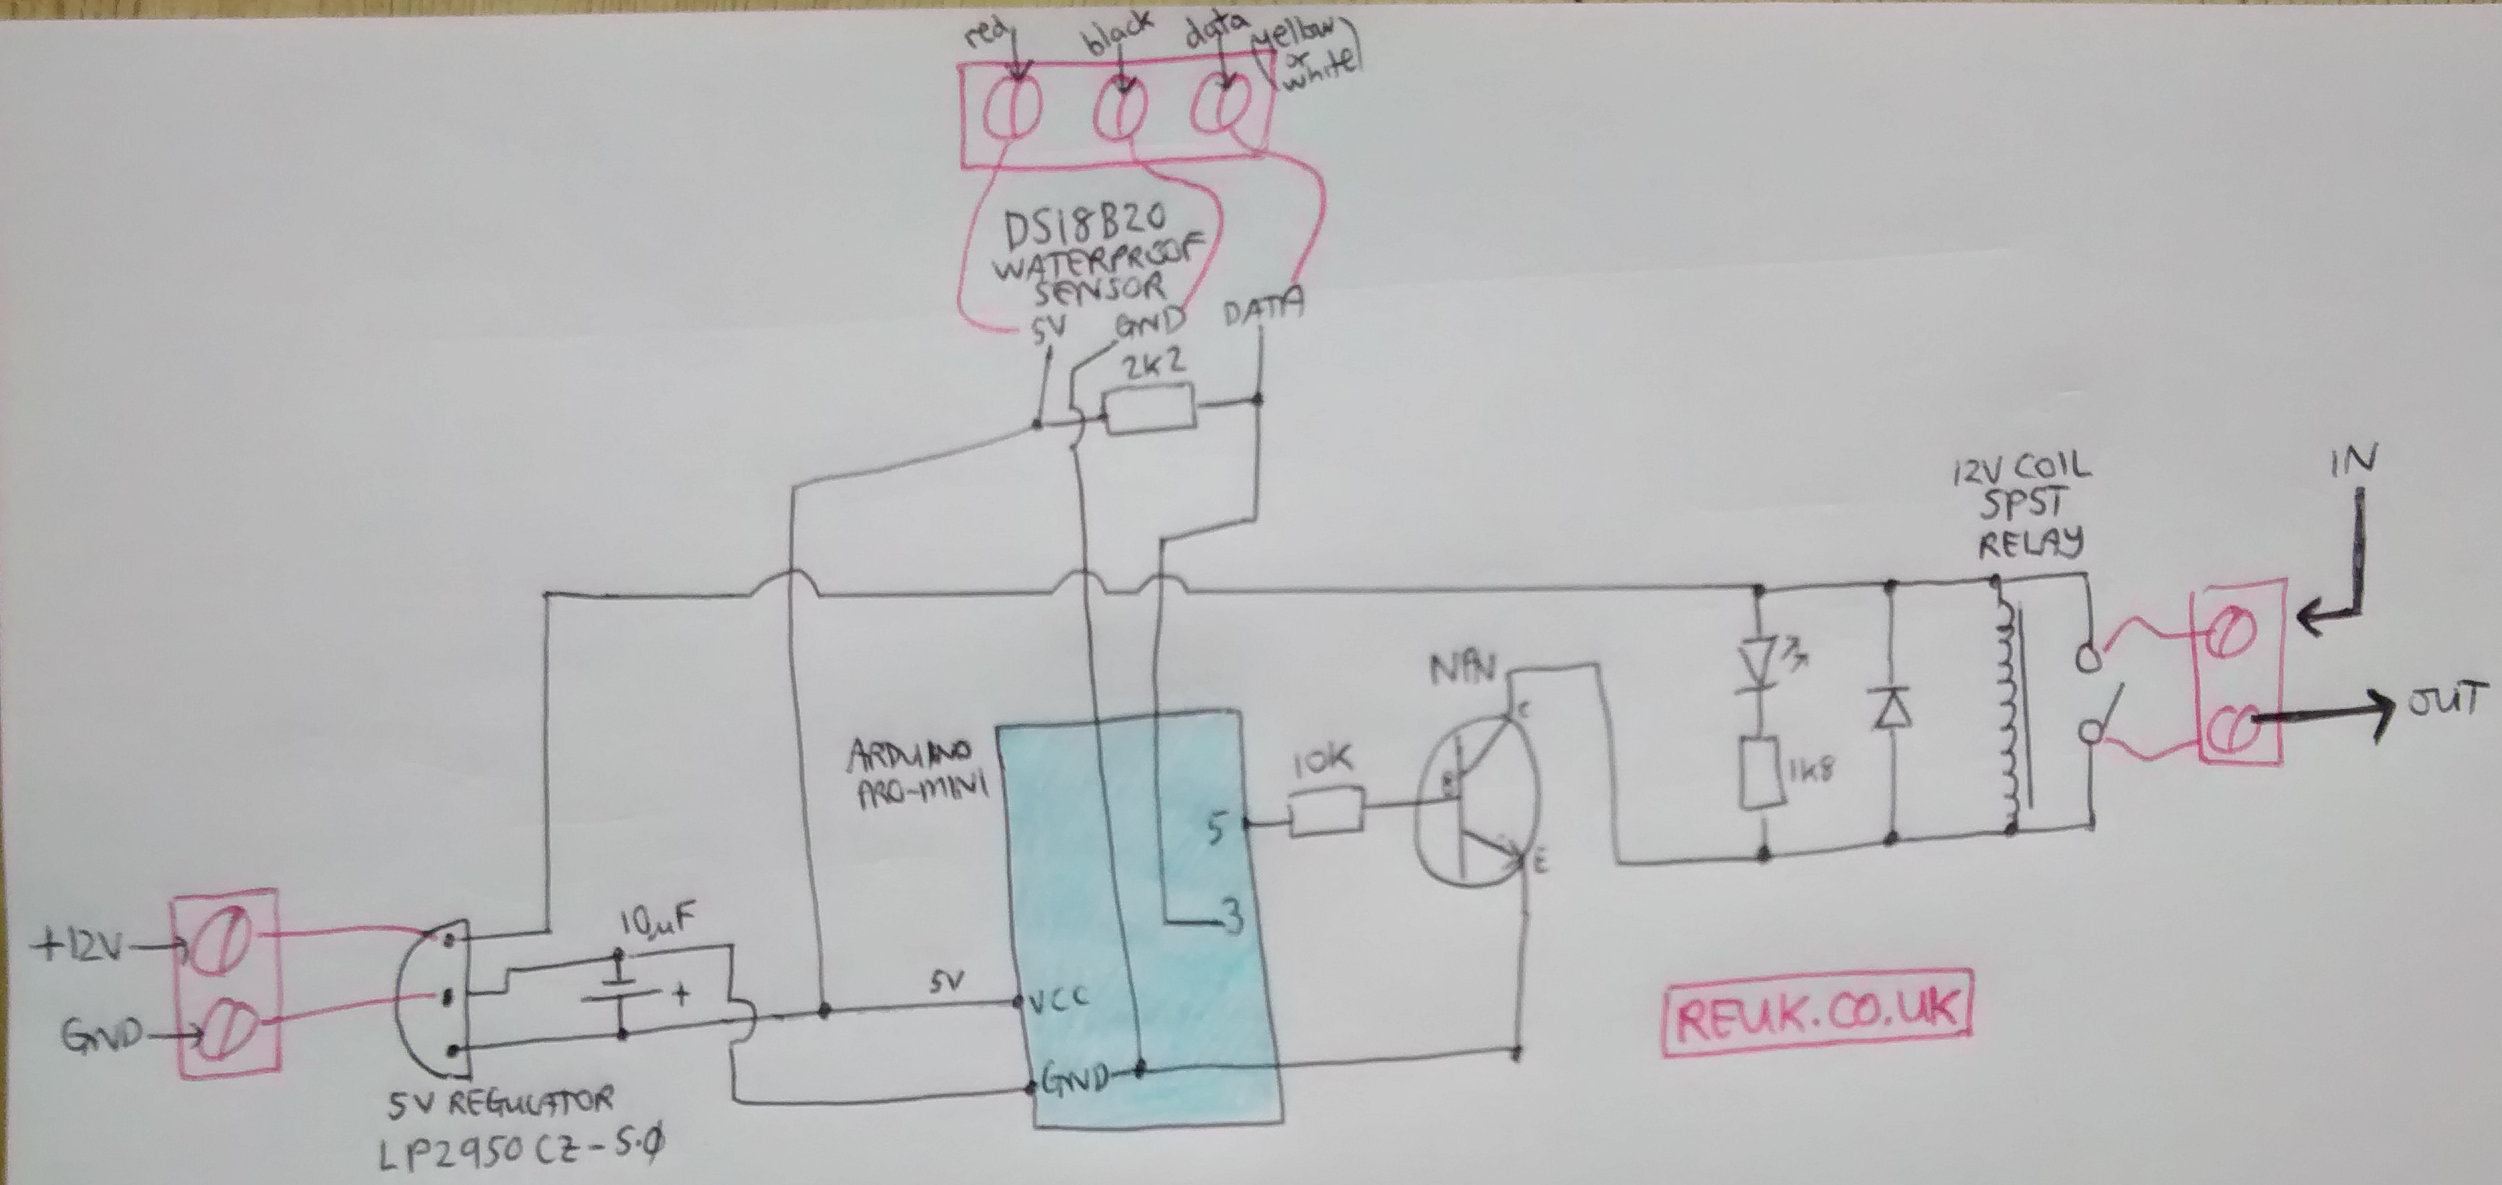 red
black
data
(yellow
or
white)
DS18B20
WATERPROOF
SENSOR
5V
GND
DATA
2K2
12V COIL
SPST
RELAY
IN
OUT
NPN
C
B
E
10K
1K8
ARDUINO
PRO-MINI
5
3
+12V
GND
10µF
+
5V
VCC
GND
5V REGULATOR
LP2950CZ-5.0
REUK.CO.UK